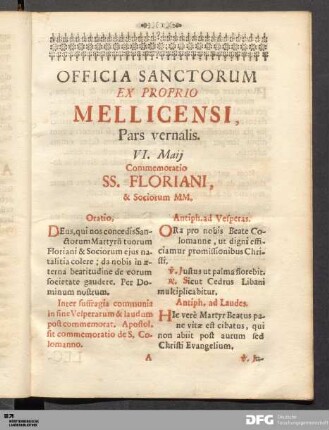 OFFICIA SANCTORUM
EX PROPRIO
MELLICENSI,
Pars vernalis.
VI. Maij
Commemoratio
SS. FLORIANI,
& Sociorum MM.
Oratio.
DEus, qui nos concedis San-
ctorum Martyrũ tuorum
Floriani & Sociorum ejus na-
talitia colere ; da nobis in æ-
terna beatitudine de eorum
societate gaudere. Per Do-
minum nostrum.
Inter suffragia communia
in fine Vesperarum & laudum
post commemorat. Apostol.
fit commemoratio de S. Co-
lomanno.
Antiph. ad Vesperas.
ORa pro nobis Beate Co-
lomanne, ut digni effi-
ciamur promissionibus Chri-
sti.
℣. Justus ut palma florebit.
℟. Sicut Cedrus Libani
multiplicabitur.
Antiph. ad Laudes.
HIc verè Martyr Beatus pa-
ne vitæ est cibatus, qui
non abiit post aurum sed
Christi Evangelium.
A
DFG Deutsche
Forschungsgemeinschaft